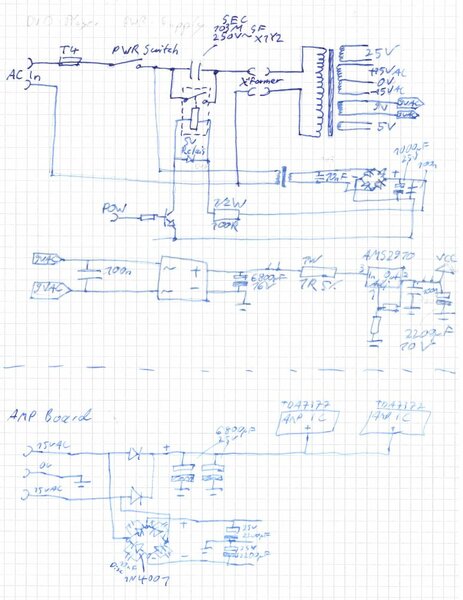 DVD Player PWR Supply
SEC
103M SF
250V~ X1Y2
T4
PWR Switch
AC in
Xformer
25V
15VAC
0V
15VAC
9V
9VAC
9VAC
5V
5V
Relais
220nF
1000µF
25V
100n
POW
1/2W
100R
9VAC
9VAC
100n
~
~
+
-
6800µF
16V
1W
1R 5%
AMS2970
in
out
Adj
VCC
100n
2200µF
10V
AMP Board
15VAC
0V
15VAC
+
6800µF
25V
TDA7377
AMP IC
+
TDA7377
AMP IC
+
+
-
25V
2200µF
25V
2200µF
1N4007